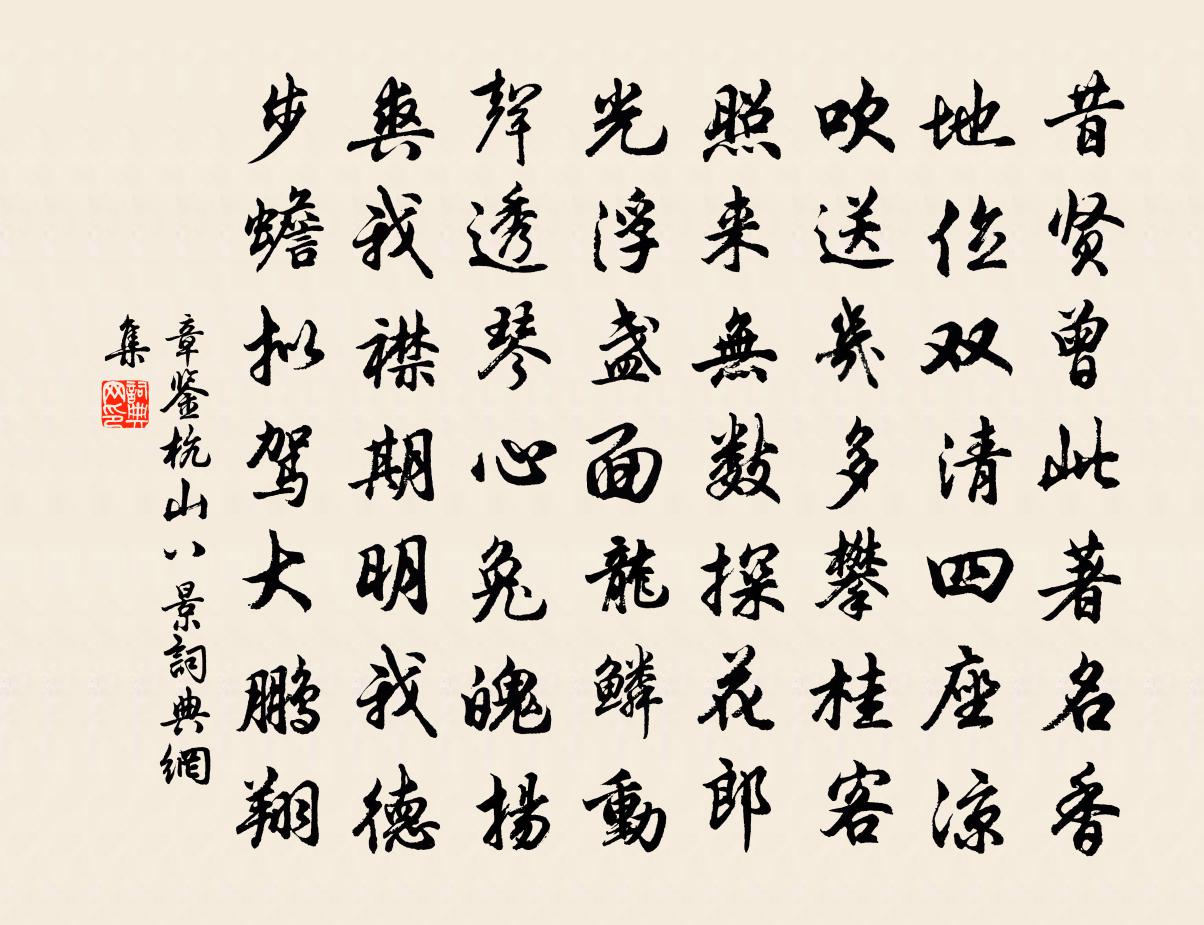 昔贤曾此著名香
地位双清四座凉
吹送幾多攀桂客
照来無数探花郎
光浮盏面龍鳞動
聲透琴心兔魄揚
爽我襟期明我德
步蟾拟驾大鹏翔
章鉴杭山八景詞典網
集
詞典网印